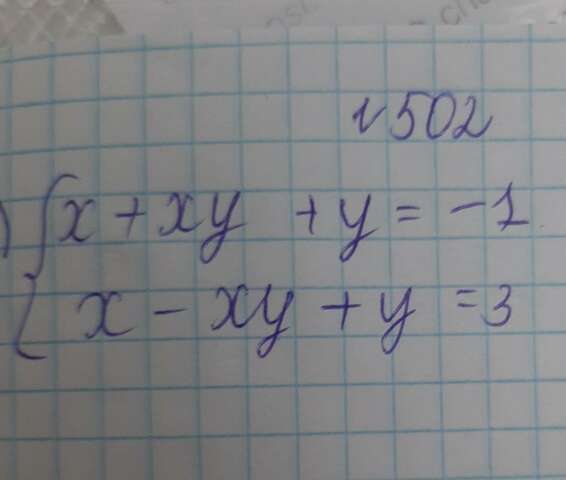 № 502
) { x + xy + y = -1
x - xy + y = 3